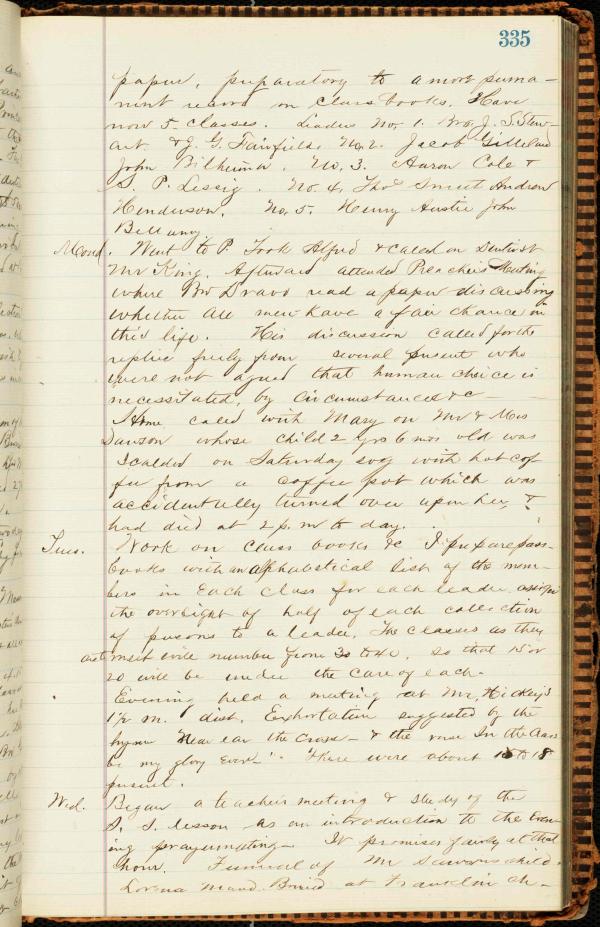 335
paper, preparatory to a more perma-
nint record on class books. Have
now 5 classes. Leaders No. 1. Bro. J. S. Stew-
art. & J. G. Fairfield. No. 2. Jacob Gilleland
John Bilheimer. No. 3. Aaron Cole &
S. P. Lessig. No. 4. Thos Smeet Andrew
Henderson. No. 5. Henry Austie John
Bellamy.
Mond. Went to P. Took Alfred & caled on Dentist
Mr King. Afterward attended Preachers Meeting
where Bro Dravo read a paper discussing
whether all men have a fair chance in
this life. His discussion called forthe
replie freely from several present who
were not agreed that human choice is
necessitated, by circumstances &c-
Home caled with Mary on Mr & Mrs
Dawson whose child 2 yrs 6 mos old was
scalded on Saturday evg with hot cof
fee from a coffee pot which was
accidentfully turned over upon her, &
had died at 2 p. m to day.
Tues. Work on class books &c I prepare pass-
books with an alphabetical list of the mem-
bers in each class for each leader assign
the oversight of half of each collection
of persons to a leader. The classes as they
are most will number from 30 to 40. so that 15 or
20 will be under the care of each.
Evening held a meeting at Mr. Hickey's
1 1/2 m. dist. Exhortation suggested by the
hymn Near ear the Cross- & the verse In the Cross
be my glory Ever-" There were about 15 to 18
present.
Wed. Began a teachers meeting & study of the
S. S. lesson as an introduction to the Even-
ing prayermeeting- It promises fairly at that
hour. Funeral of Mr child
Lorena Maud. Buried at Franklin ch-